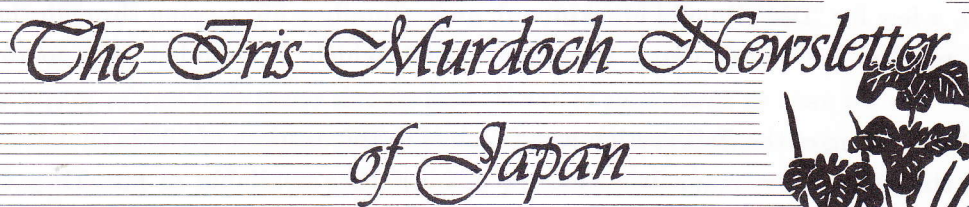 The Iris Murdoch Newsletter
of Japan